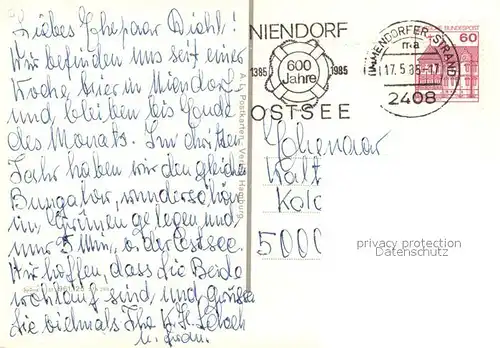 Liebes Ehepaar Diehl!
Wir befinden uns seit einer
Woche hier in Niendorf
und bleiben bis Ende
des Monats. Im dritten
Jahr haben wir den gleichen
Bungalow, wunderschön
im Grünen gelegen und
nur 5 Min. v. der Ostsee.
Wir hoffen, dass Sie Beide
wohlauf sind, und grüssen
Sie vielmals Ihre K. H.
u. Frau.
A. L. Postkarten – Verlag Hamburg
NIENDORF
1385 600 Jahre 1985
OSTSEE
TIMMENDORFER STRAND
ma
17.5.85-17
2408
BUNDESPOST
60
Ehepaar
Walt
5000
privacy protection
Datenschutz